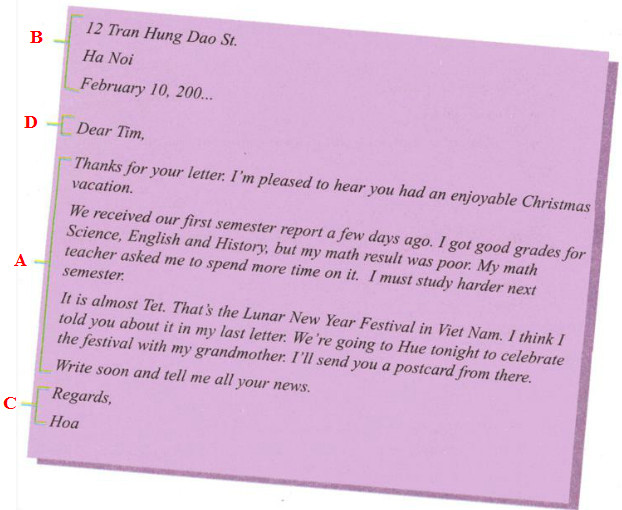 B
12 Tran Hung Dao St.
Ha Noi
February 10, 200...
D
Dear Tim,
Thanks for your letter. I'm pleased to hear you had an enjoyable Christmas
vacation.
We received our first semester report a few days ago. I got good grades for
Science, English and History, but my math result was poor. My math
teacher asked me to spend more time on it. I must study harder next
semester.
A
It is almost Tet. That's the Lunar New Year Festival in Viet Nam. I think I
told you about it in my last letter. We're going to Hue tonight to celebrate
the festival with my grandmother. I'll send you a postcard from there.
Write soon and tell me all your news.
C
Regards,
Hoa